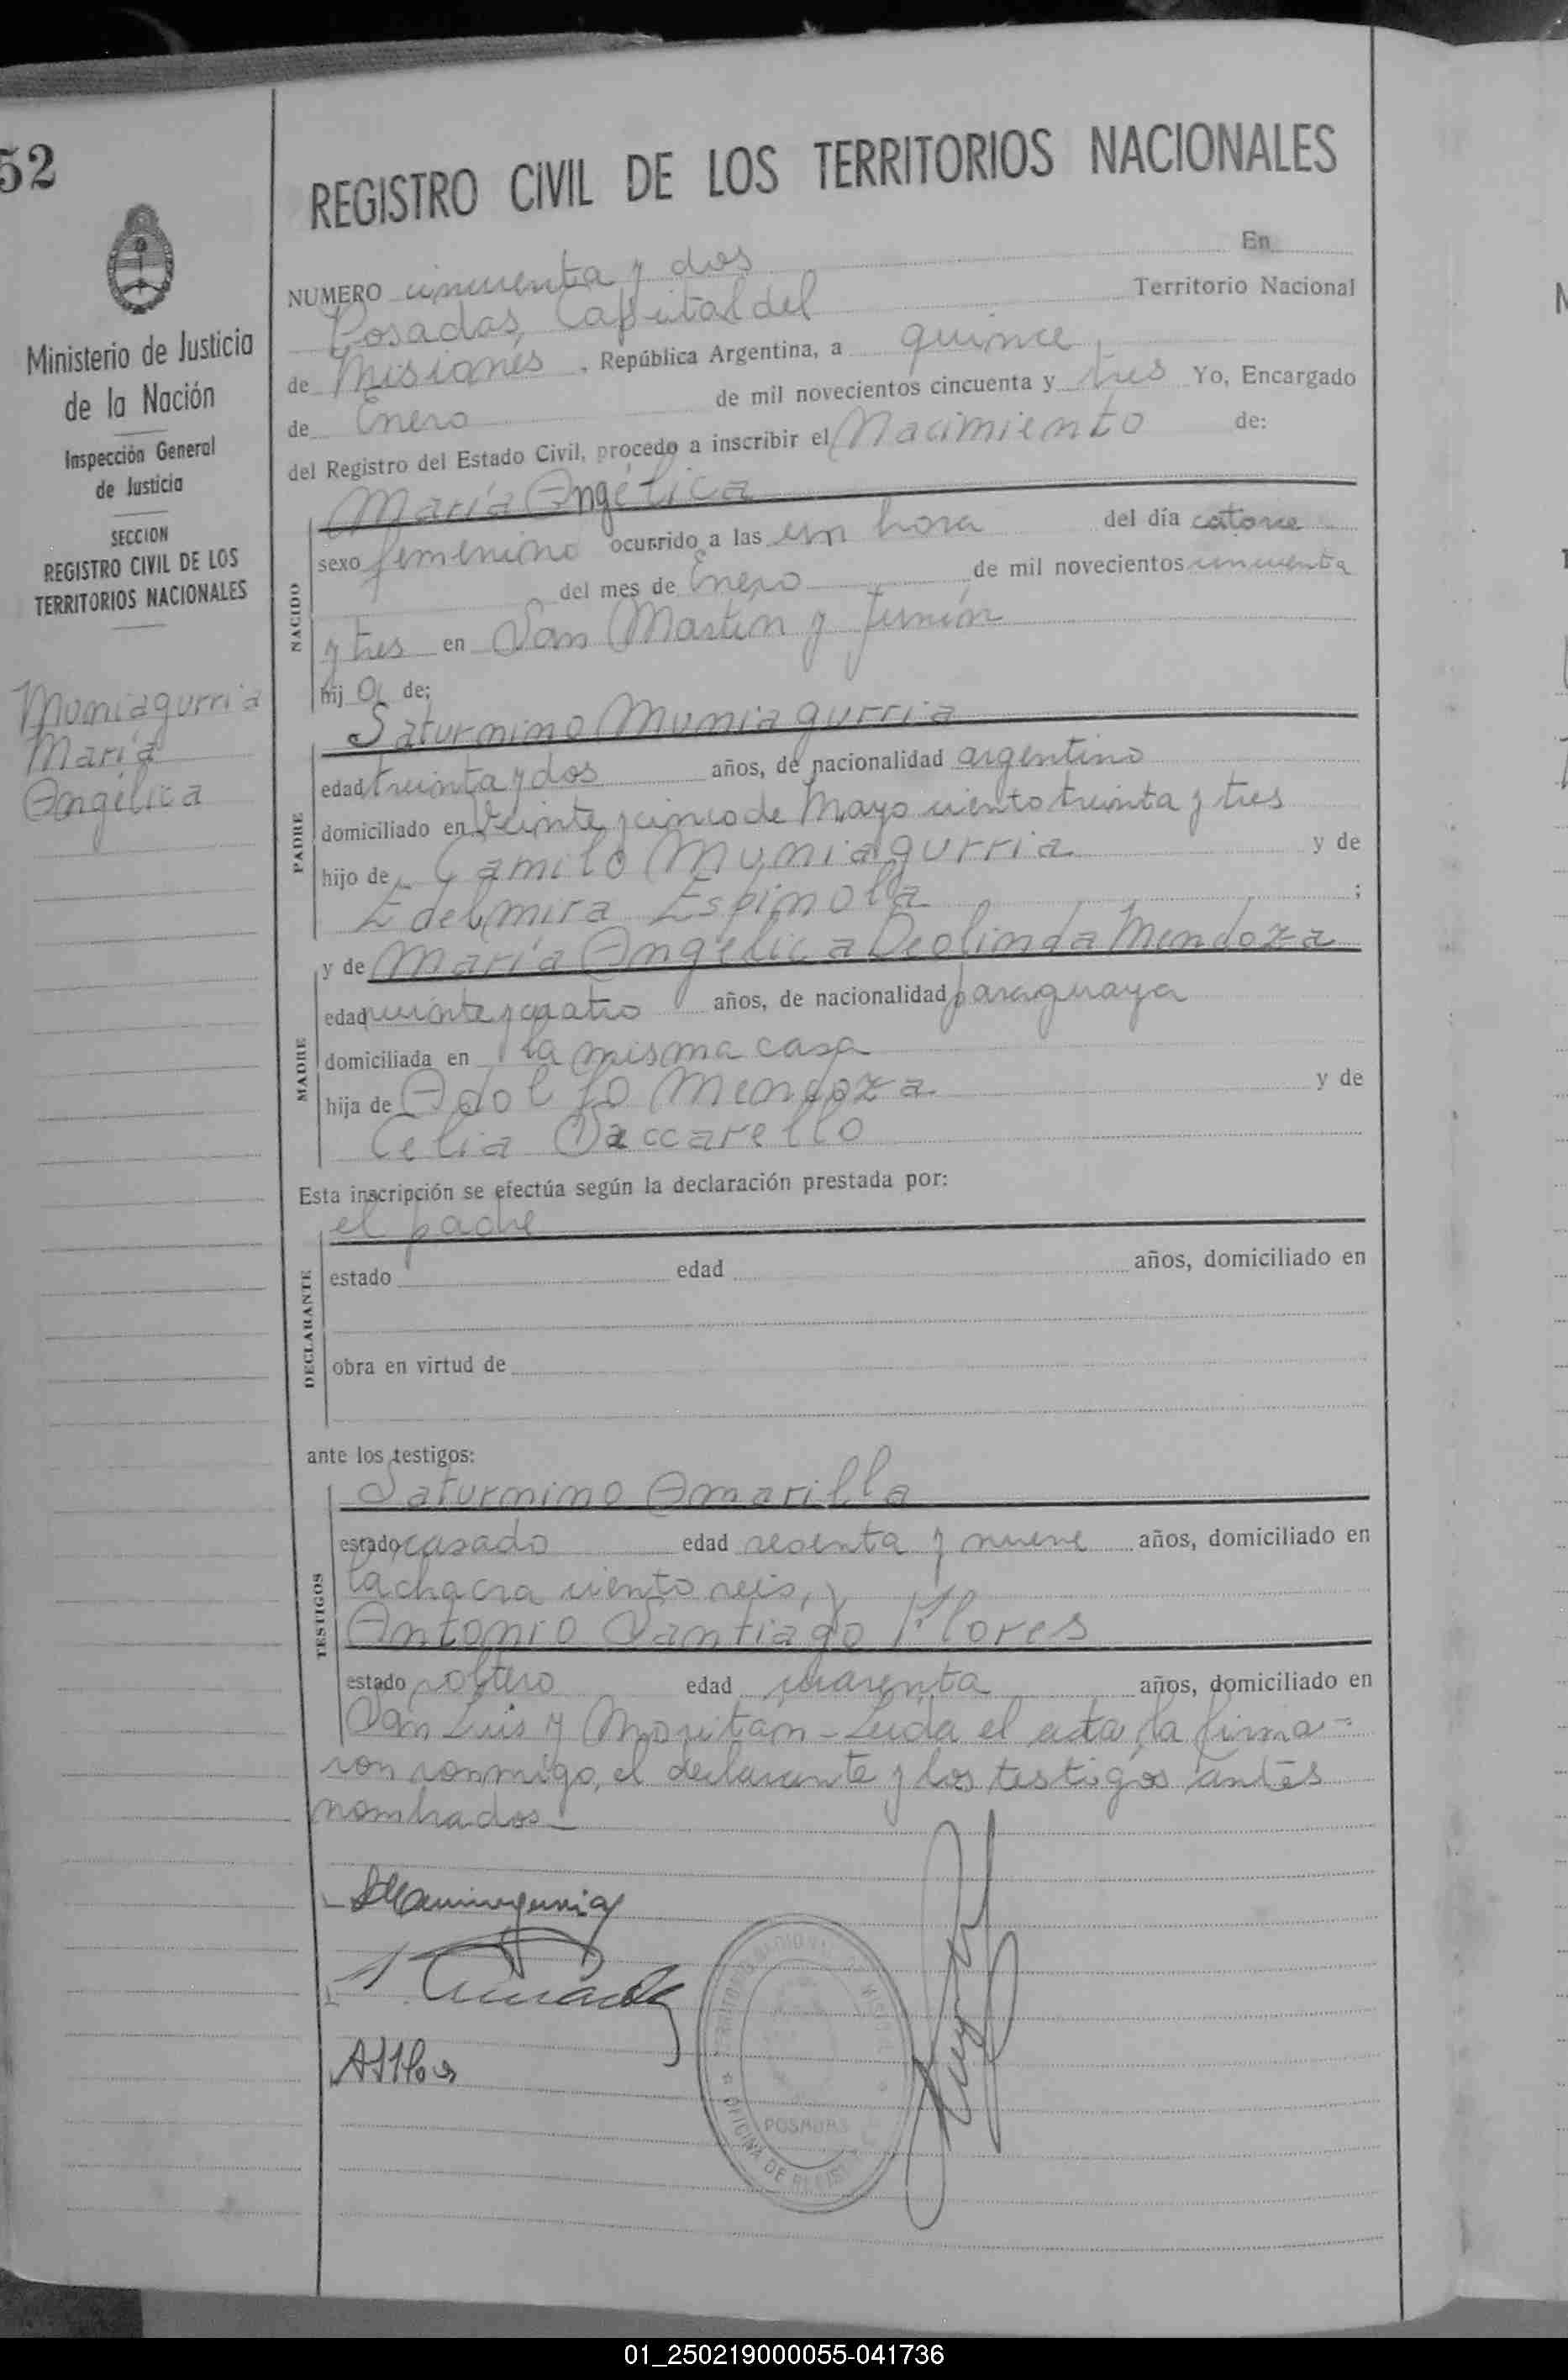 52
Ministerio de Justicia
de la Nación
Inspección General
de Justicia
SECCION
REGISTRO CIVIL DE LOS
TERRITORIOS NACIONALES
Muniagurria
María
Angélica
REGISTRO CIVIL DE LOS TERRITORIOS NACIONALES
NUMERO cincuenta y dos En
Posadas, Capital del Territorio Nacional
de Misiones, República Argentina, a quince
de Enero de mil novecientos cincuenta y tres Yo, Encargado
del Registro del Estado Civil, procedo a inscribir el Nacimiento de:
NACIDO
María Angélica
sexo femenino ocurrido a las un hora del día catorce
del mes de Enero de mil novecientos cincuenta
y tres en San Martín y Junín
hija de;
PADRE
Saturnino Muniagurria
edad treinta y dos años, de nacionalidad argentino
domiciliado en Veinte y cinco de Mayo ciento treinta y tres
hijo de Camilo Muniagurria y de
Edelmira Espinola ;
MADRE
y de María Angélica Deolinda Mendoza
edad veinte y cuatro años, de nacionalidad paraguaya
domiciliada en la misma casa
hija de Adolfo Mendoza y de
Celia Vaccarello
Esta inscripción se efectúa según la declaración prestada por:
DECLARANTE
el padre
estado edad años, domiciliado en
obra en virtud de
ante los testigos:
TESTIGOS
Saturnino Amarilla
estado casado edad sesenta y nueve años, domiciliado en
la chacra ciento seis, y
Antonio Santiago Flores
estado soltero edad cuarenta años, domiciliado en
San Luis y Moritan - Leida el acta, la firma=
ron conmigo, el declarante y los testigos antes
nombrados_
SMuniagurria
POSADAS
OFICINA DE
01_250219000055-041736